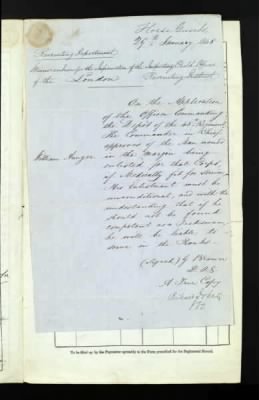 Horse Guards
26th January 1848
Recruiting Department
Memorandum for the Information of the Inspecting Field Officer
of the London Recruiting District
On the Application
of the Officer Commanding
the Depot of the Regiment
the Commander in Chief
approves of the Man named
William in the margin being
enlisted for that Corps,
if Medically fit for Service
His Enlistment must be
unconditional, and with the
understanding that if he
should not be found
competent as a
he will be liable to
serve in the Ranks.
(Signed) G Brown
D. A. G.
A True Copy
To be filled up by the Paymaster agreeably to the Form prescribed for the Regimental Record.